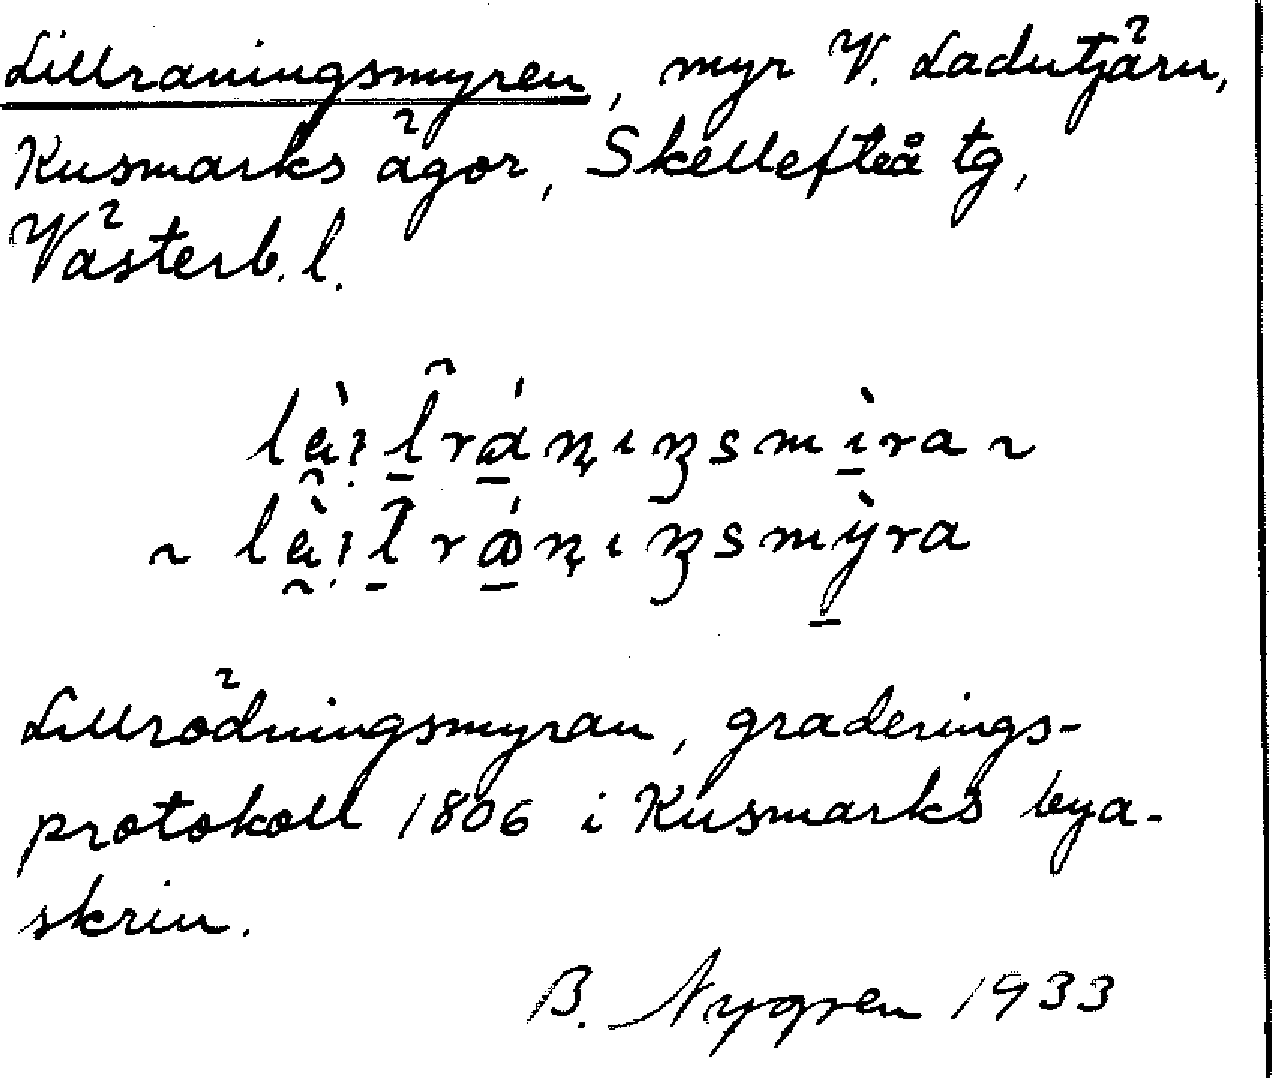 Lillraningsmyren, myr V. Ladutjärn,
Kusmarks ägor, Skellefteå tg,
Västerb. l.
Lillrödningsmyran, graderings-
protokoll 1806 i Kusmarks bya-
skrin.
B. Nygren 1933